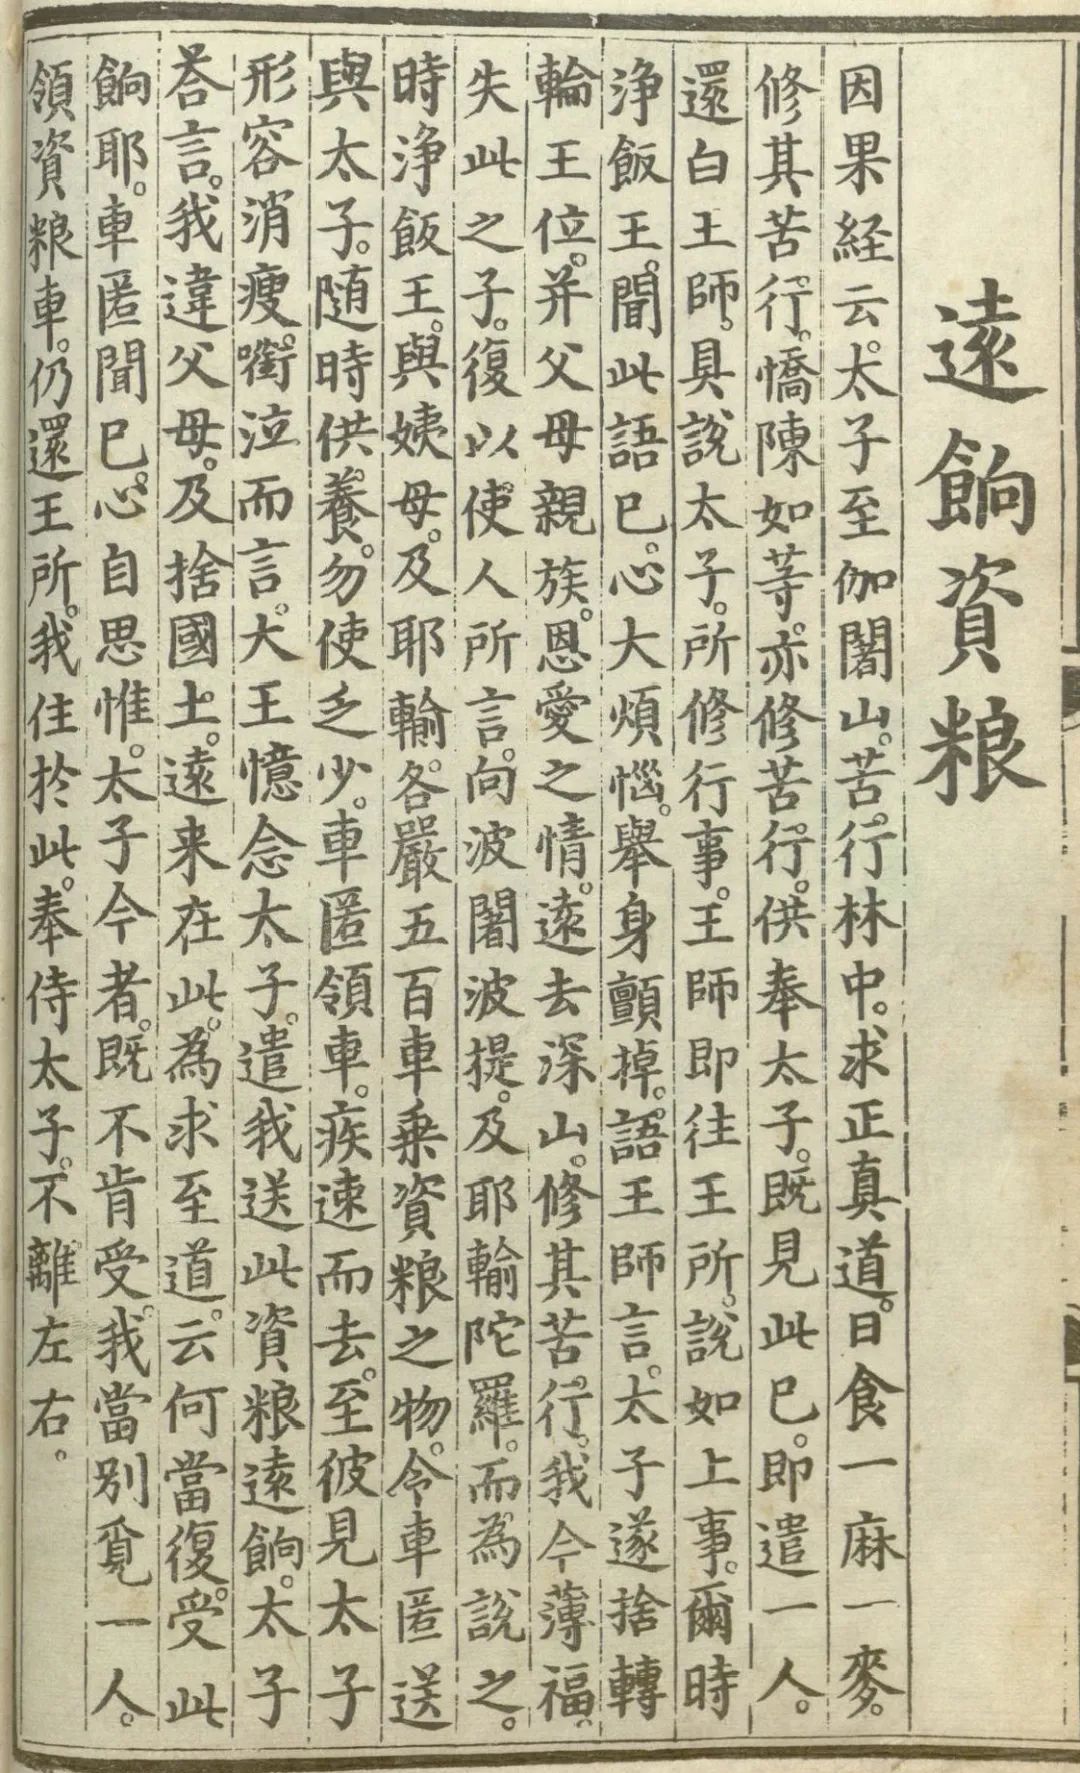 遠餉資粮
因果経云。太子至伽闍山。苦行林中。求正真道。日食一麻一麥。
修其苦行。憍陳如等。亦修苦行。供奉太子。既見此已。即遣一人。
還白王師。具說太子。所修行事。王師即往王所。說如上事。爾時
浄飯王。聞此語已。心大煩惱。舉身顫掉。語王師言。太子遂捨轉
輪王位。并父母親族。恩愛之情。遠去深山。修其苦行。我今薄福。
失此之子。復以使人所言。向波闍波提。及耶輸陀羅。而為說之。
時浄飯王。與姨母。及耶輸。各嚴五百車乗資粮之物。令車匿送
與太子。随時供養。勿使乏少。車匿領車。疾速而去。至彼見太子
形容消瘦。啣泣而言。大王憶念太子。遣我送此資粮遠餉。太子
荅言。我違父母。及捨國土。遠来在此。為求至道。云何當復受此
餉耶。車匿聞已。心自思惟。太子今者。既不肯受。我當別覓一人。
領資粮車。仍還王所。我住於此。奉侍太子。不離左右。